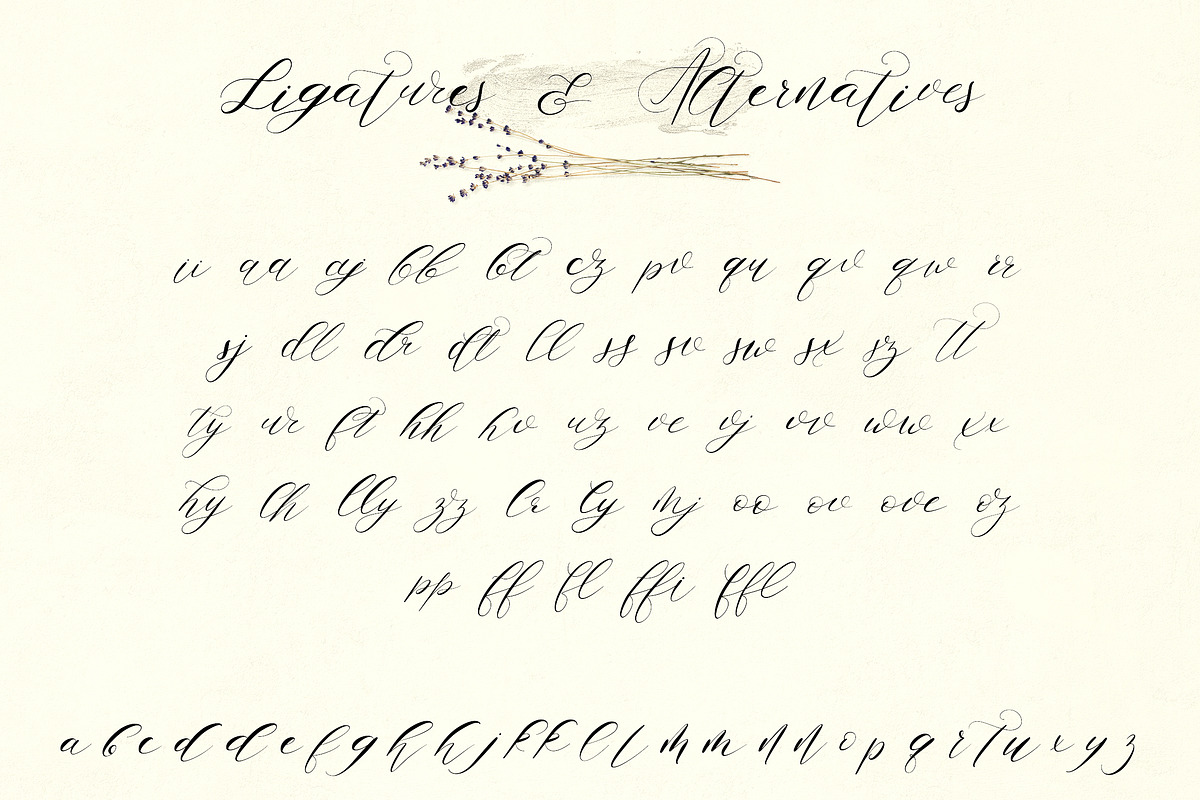 Ligatures & Alternatives
ii aa aj bb bt cz pv qu qv qw rr
sj dl dr dt ll ss sv sw sx sz tt
ty ur ft hh hv uz ve vj vv ww xx
hy lh lly zz lr ly nj oo ov ove oz
pp ff fl ffi ffl
a b c d d e f g h h j k k l l m m n n o p q r t u x y z